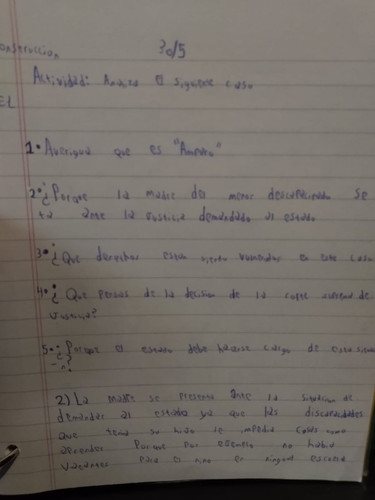 onstruccion 30/5
Actividad: Analiza el siguiente caso
EL
1• Averigua que es "Amparo"
2•¿Porque la madre del menor discapacitado se
ante la Justicia demandado al estado
3•¿Que derechos estan siento vulnerados en este caso
4•¿ Que pensas de la decision de la corte suprema de
Justicia?
5•¿Porque el estado debe hacerse cargo de esta
2) La madre se presento ante la de
demandar al estado ya que las discapacidades
que tenia su hijo le impedia cosas como
aprender Porque por ejemplo no habia
vacantes para el niño en ninguna escuela